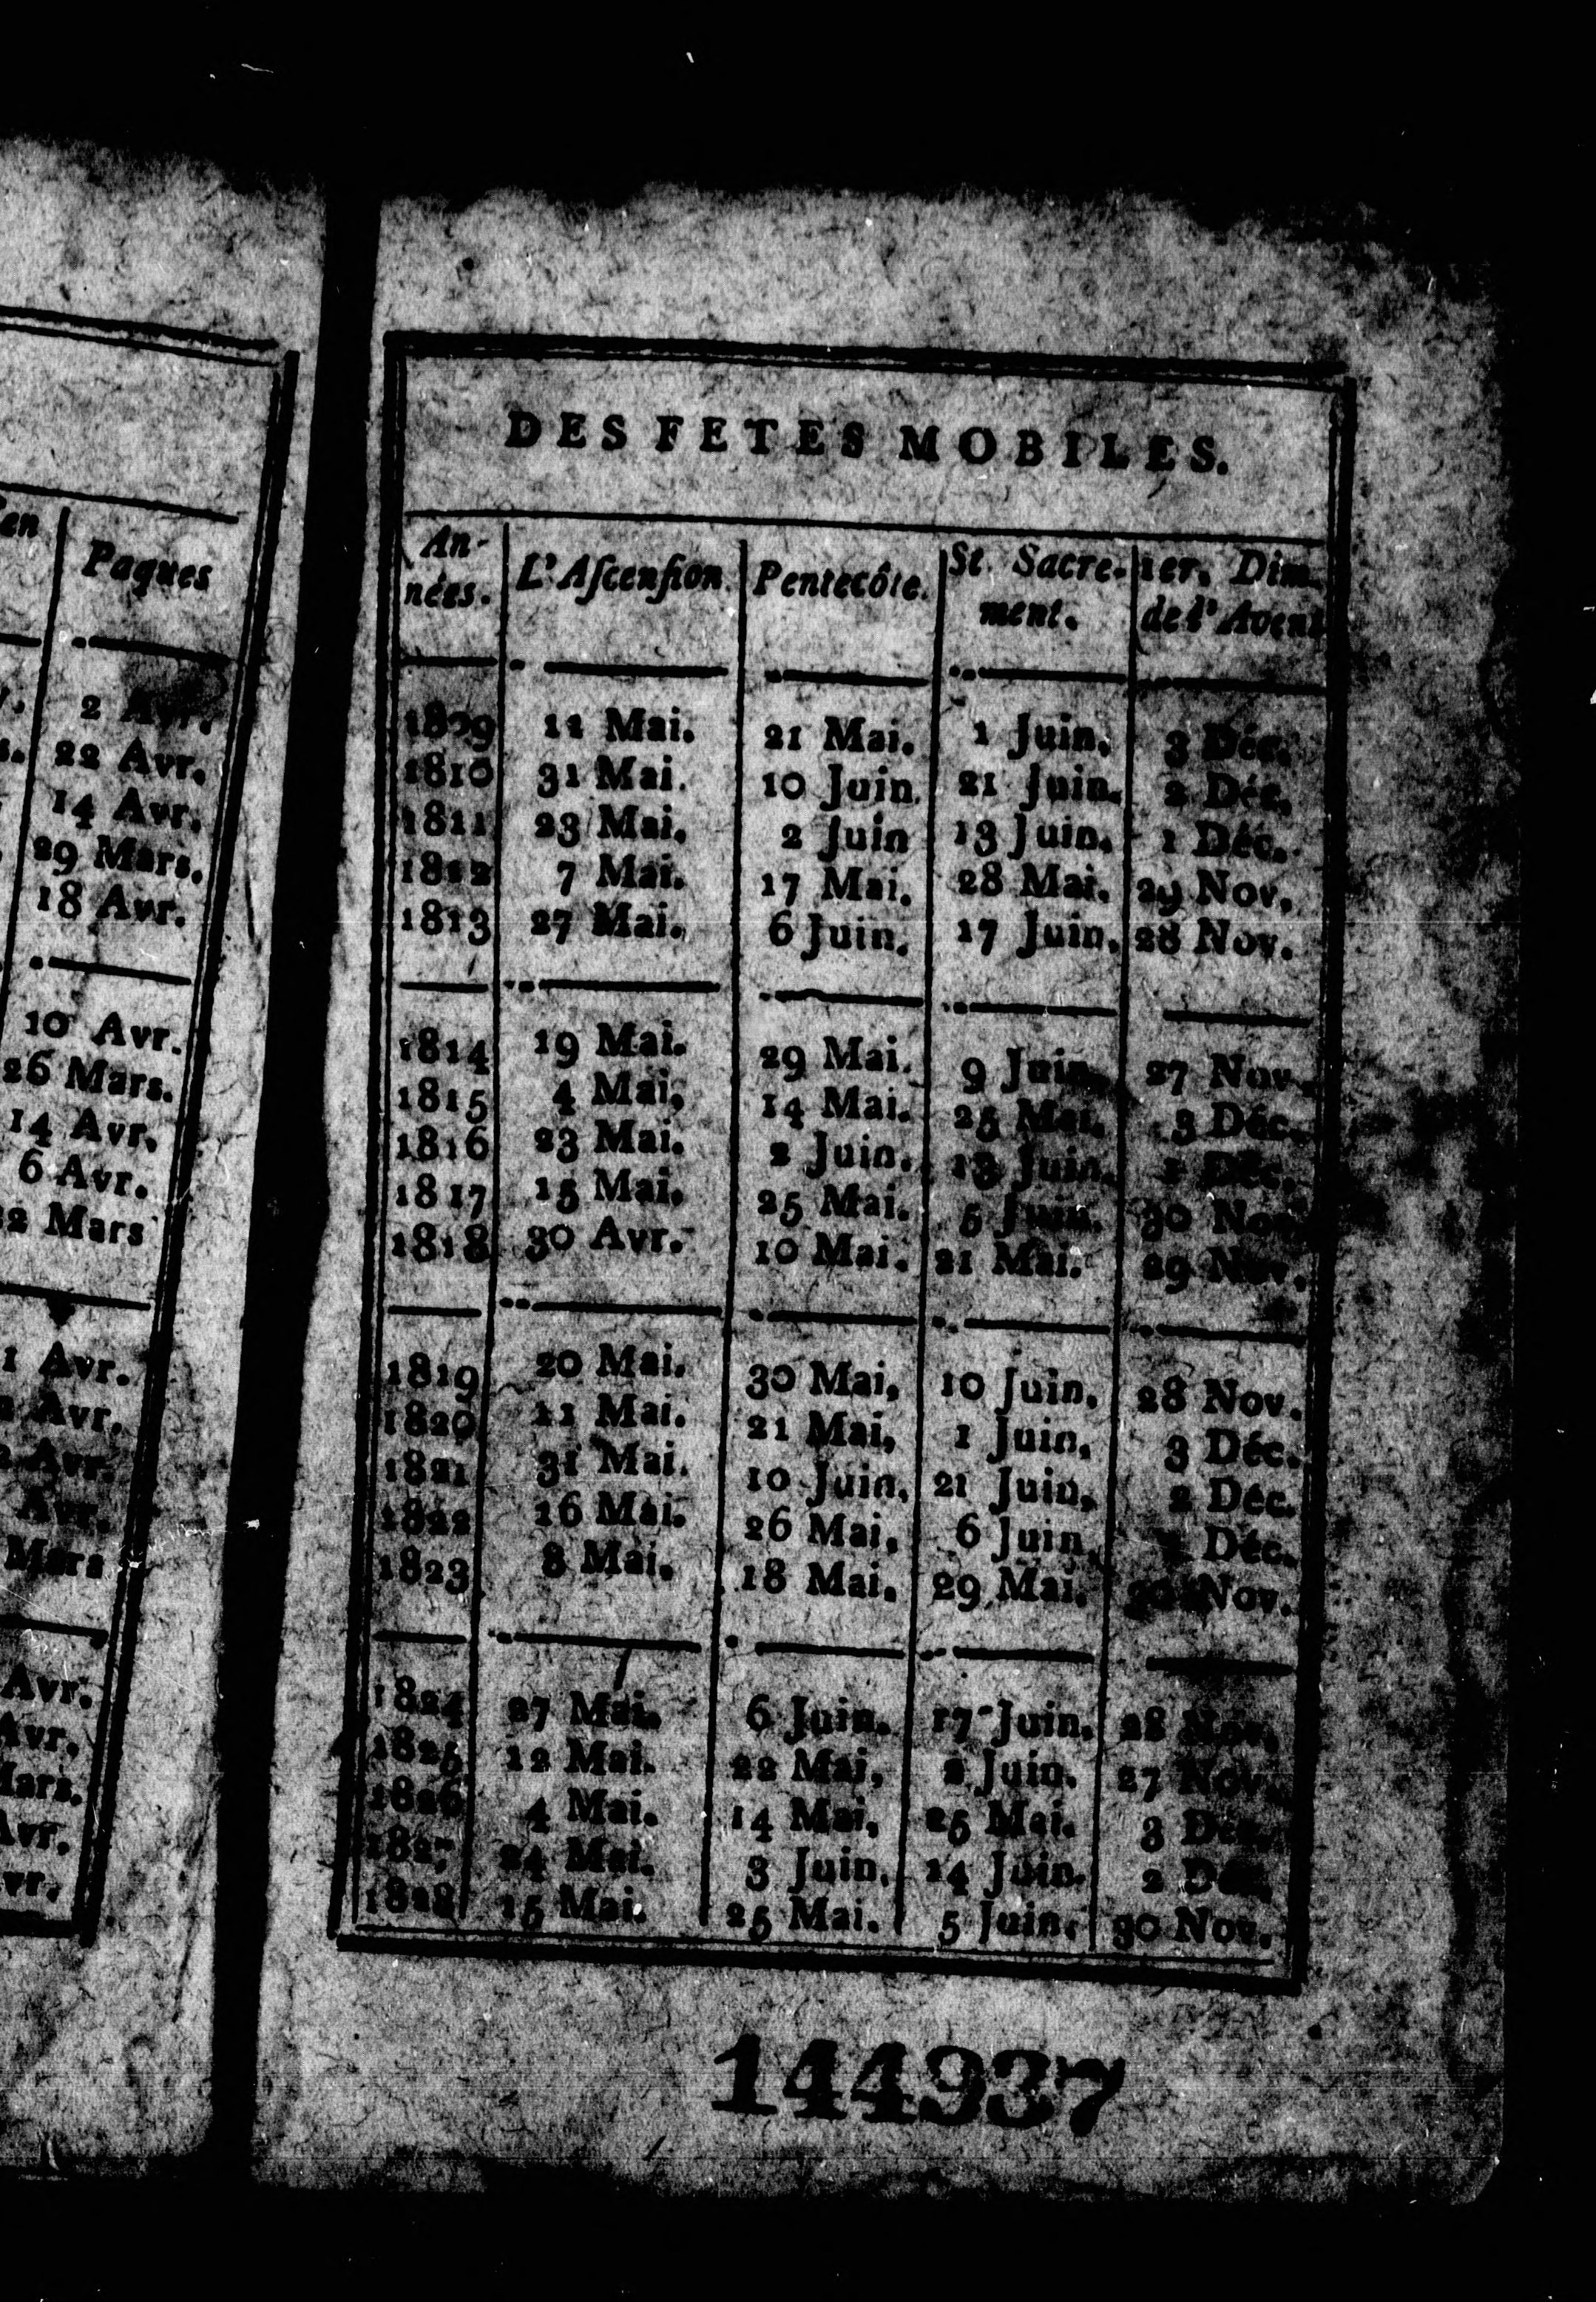 en
Paques
2 Avr.
22 Avr.
14 Avr.
29 Mars.
18 Avr.
10 Avr.
26 Mars.
14 Avr,
6 Avr.
Mars
Avr.
Avr.
Avr.
Avr.
Mars
Avr.
Avr.
Avr.
DES FETES MOBILES.
An- L'Aſcenſion. Pentecôte. St. Sacre- 1er. Dim.
nées. ment. de l'Avent
1809 11 Mai. 21 Mai. 1 Juin. 3 Déc.
1810 31 Mai. 10 Juin. 21 Juin. 2 Déc.
1811 23 Mai. 2 Juin 13 Juin. 1 Déc.
1812 7 Mai. 17 Mai. 28 Mai. 29 Nov.
1813 27 Mai. 6 Juin. 17 Juin. 28 Nov.
1814 19 Mai. 29 Mai. 9 Juin. 27 Nov.
1815 4 Mai, 14 Mai. 25 Mai. 3 Déc.
1816 23 Mai. 2 Juin. 13 Juin. 1 Déc.
1817 15 Mai. 25 Mai. 5 Juin. 30 Nov.
1818 30 Avr. 10 Mai. 21 Mai. 29 Nov.
1819 20 Mai. 30 Mai, 10 Juin, 28 Nov.
1820 11 Mai. 21 Mai, 1 Juin, 3 Déc.
1821 31 Mai. 10 Juin, 21 Juin, 2 Déc.
1822 16 Mai. 26 Mai. 6 Juin, Déc.
1823 8 Mai. 18 Mai. 29 Mai. 30 Nov.
1824 27 Mai. 6 Juin. 17 Juin. 28 Nov.
1825 12 Mai. 22 Mai, 2 Juin. 27 Nov.
1826 4 Mai. 14 Mai, 25 Mai. 3 Déc.
1827 24 Mai. 3 Juin, 14 Juin. 2 Déc.
1828 15 Mai. 25 Mai. 5 Juin. 30 Nov.
144937